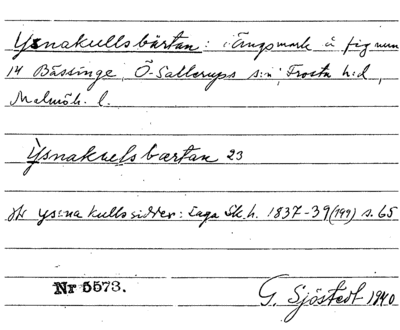 Ysnakullsbärtan: Ängsmark å fig num
14 Bässinge, Ö-Sallerups s:n, Frosta h:d,
Malmöh. l.
Ysnakulsbærtan 23
jfr ys:na kullssidter: Laga Sk.h. 1837-39 (199) s. 65
Nr 5573.
G. Sjöstedt 1940